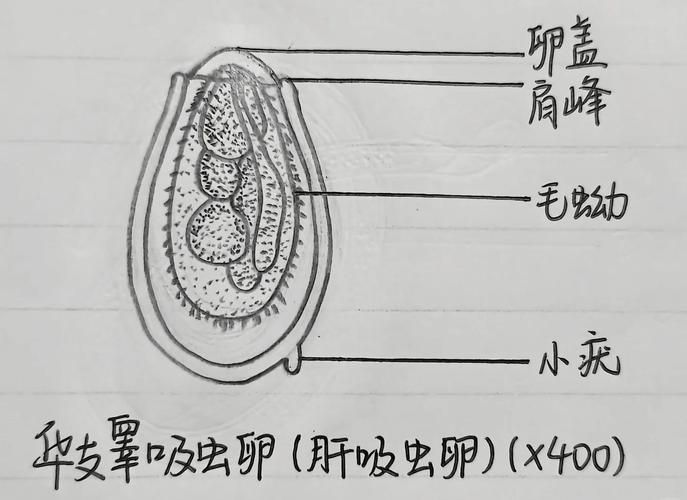 卵盖
肩峰
毛蚴
小疣
华支睾吸虫卵(肝吸虫卵)(×400)